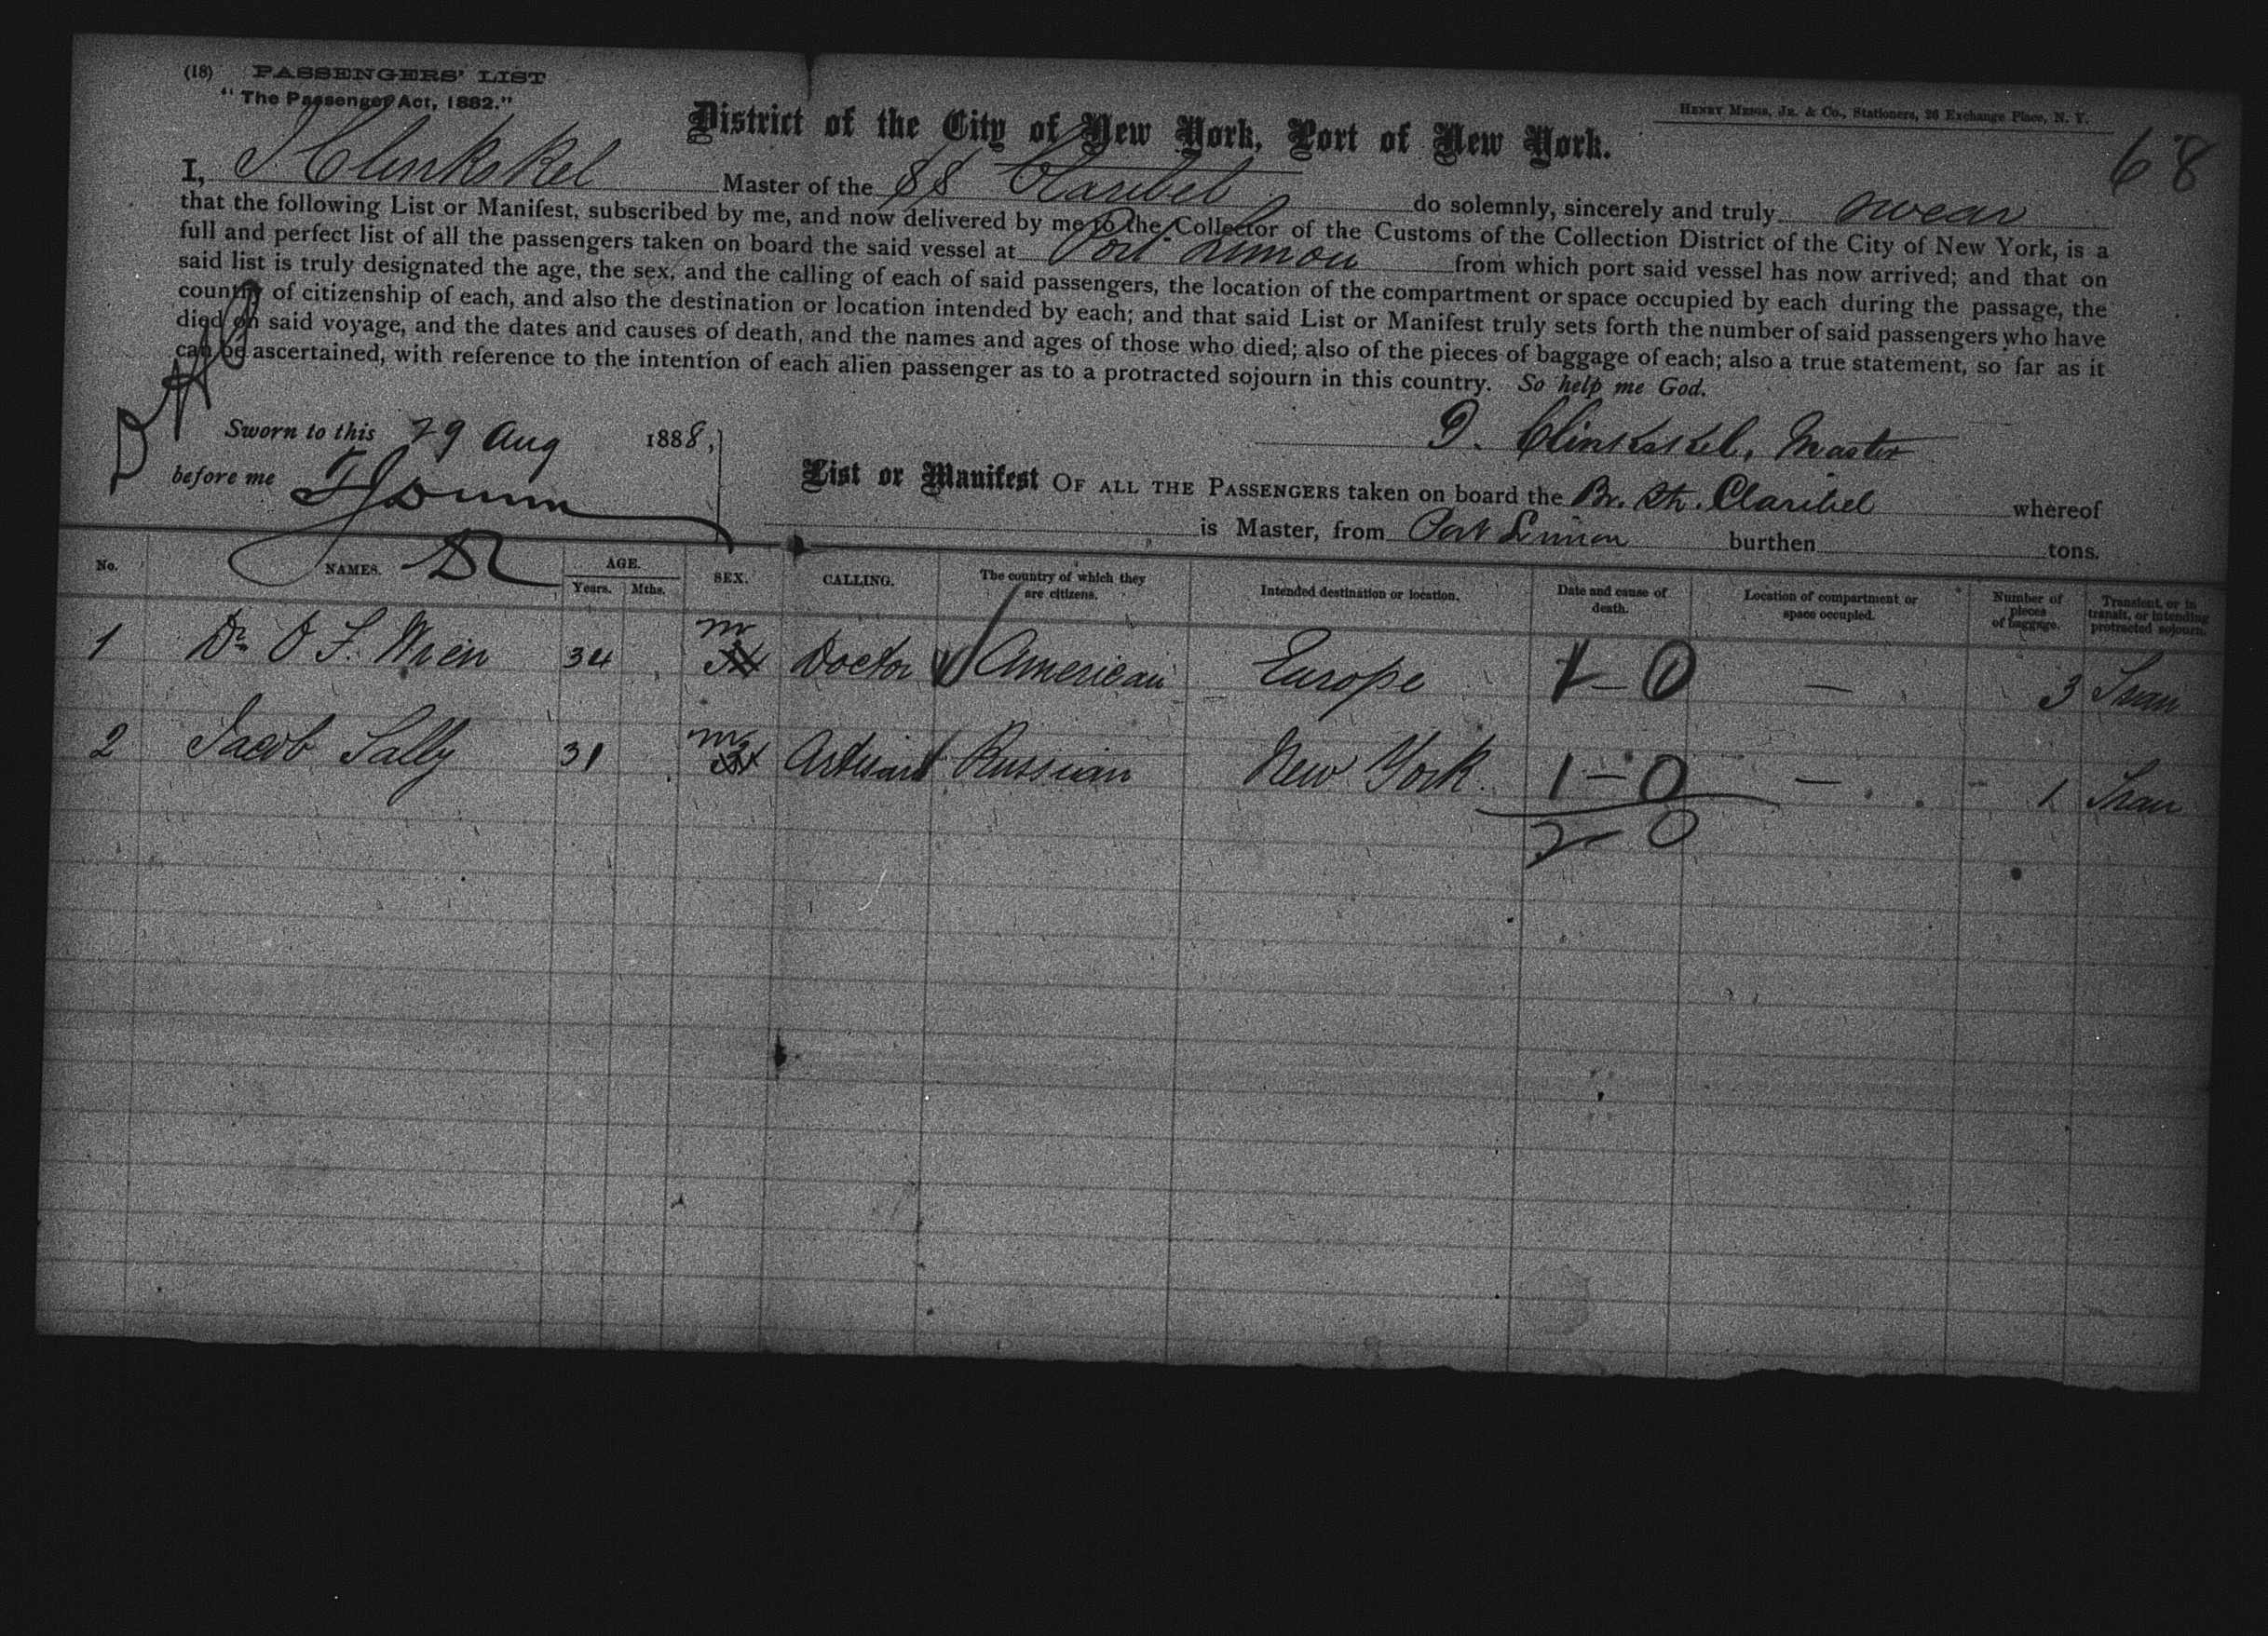 (18) PASSENGERS' LIST
"The Passenger Act, 1882."
HENRY MEIGS, JR. & CO., Stationers, 26 Exchange Place, N. Y.
District of the City of New York, Port of New York.
68
I, J Clinkskel Master of the SS Claribel do solemnly, sincerely and truly swear
that the following List or Manifest, subscribed by me, and now delivered by me to the Collector of the Customs of the Collection District of the City of New York, is a
full and perfect list of all the passengers taken on board the said vessel at Port Limon from which port said vessel has now arrived; and that on
said list is truly designated the age, the sex, and the calling of each of said passengers, the location of the compartment or space occupied by each during the passage, the
country of citizenship of each, and also the destination or location intended by each; and that said List or Manifest truly sets forth the number of said passengers who have
died on said voyage, and the dates and causes of death, and the names and ages of those who died; also of the pieces of baggage of each; also a true statement, so far as it
can be ascertained, with reference to the intention of each alien passenger as to a protracted sojourn in this country. So help me God.
Sworn to this 29 Aug 1888,
J. Clinkskel, Master
before me
List or Manifest OF ALL THE PASSENGERS taken on board the Br. Str. Claribel whereof
is Master, from Port Limon burthen tons.
No. NAMES. AGE. Years. Mths. SEX. CALLING. The country of which they are citizens. Intended destination or location. Date and cause of death. Location of compartment or space occupied. Number of pieces of baggage. Transient, or in transit, or intending protracted sojourn.
1 Dr. O F. Wren 34 m Doctor American Europe 1-0 — 3 Tran
2 Jacob Sally 31 m Russian New York 1-0 — 1 Tran
2-0